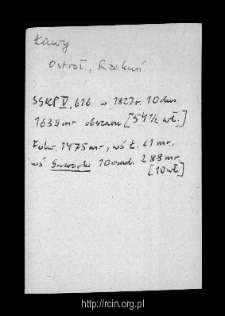 Ławy
Ostroł., Rzekuń
SGKP V, 616. w 1827 r. 10 dm.
1639 mr. obszaru [54 1/2 wł.]
Folw. 1475 mr, wś Ł. 61 mr.
wś 10 osad. 288 mr.
[10 wł]
http://rcin.org.pl